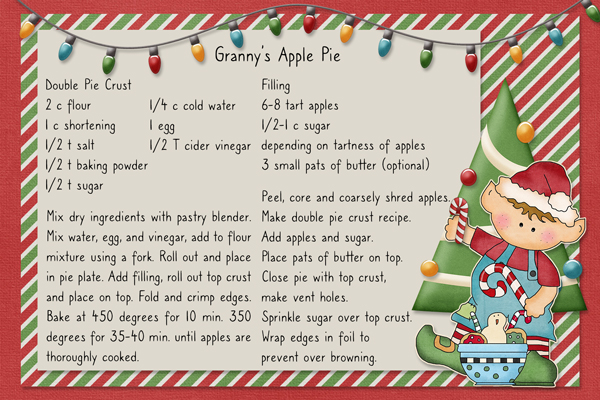 Granny's Apple Pie
Double Pie Crust
2 c flour
1/4 c cold water
1 c shortening
1 egg
1/2 t salt
1/2 T cider vinegar
1/2 t baking powder
1/2 t sugar
Mix dry ingredients with pastry blender.
Mix water, egg, and vinegar, add to flour
mixture using a fork. Roll out and place
in pie plate. Add filling, roll out top crust
and place on top. Fold and crimp edges.
Bake at 450 degrees for 10 min. 350
degrees for 35-40 min. until apples are
thoroughly cooked.
Filling
6-8 tart apples
1/2-1 c sugar
depending on tartness of apples
3 small pats of butter (optional)
Peel, core and coarsely shred apples.
Make double pie crust recipe.
Add apples and sugar.
Place pats of butter on top.
Close pie with top crust,
make vent holes.
Sprinkle sugar over top crust.
Wrap edges in foil to
prevent over browning.